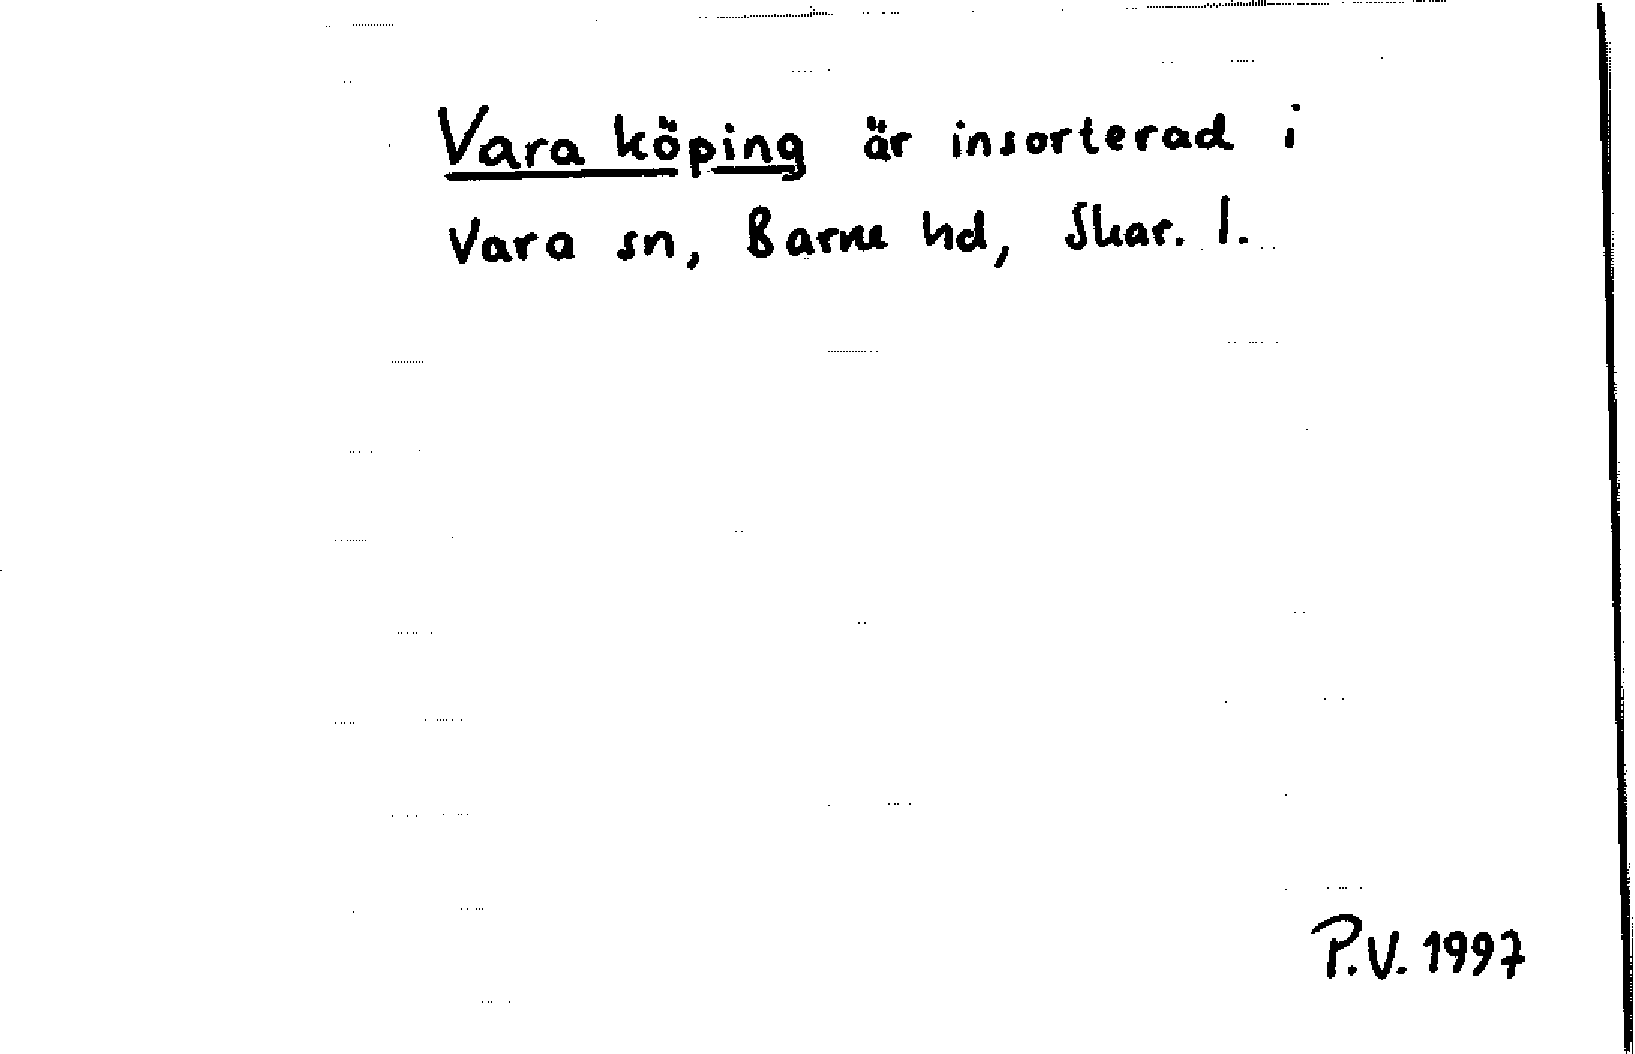 Vara köping är insorterad i
Vara sn, Barne hd, Skar. l.
P.V. 1997